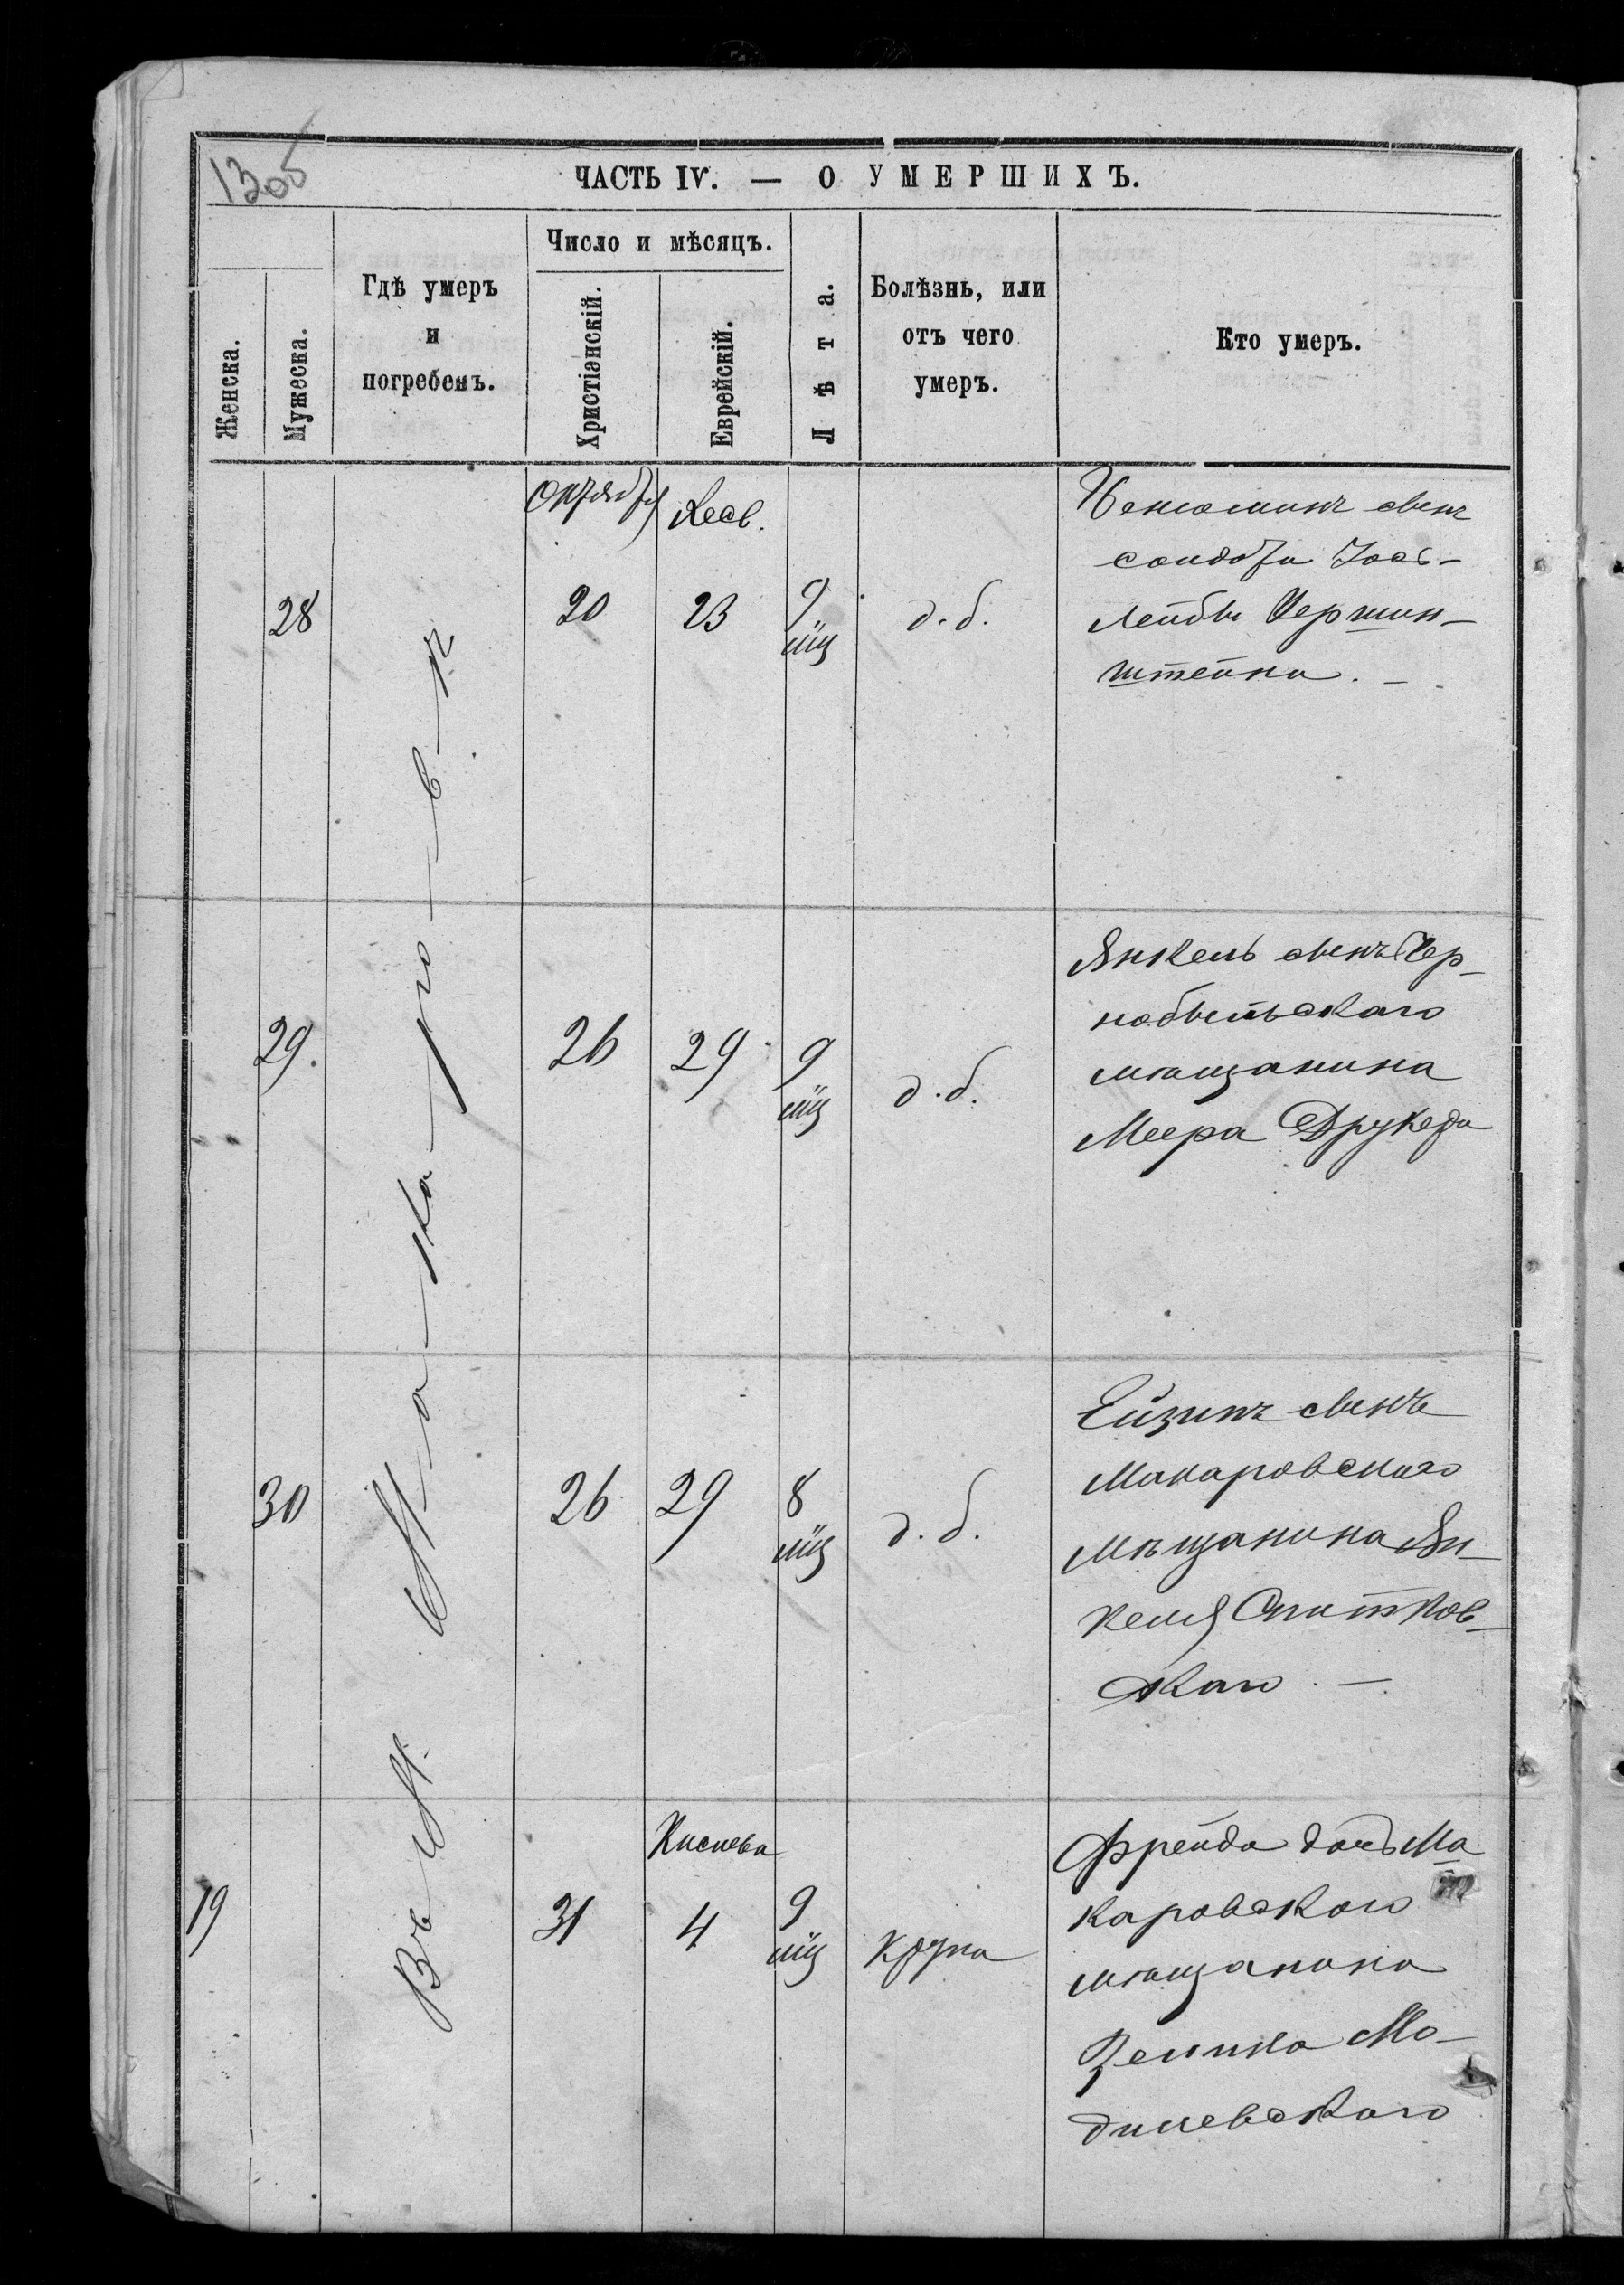 1305
ЧАСТЬ IV. — О УМЕРШИХЪ.
Женска.
Мужеска.
Гдѣ умеръ
и
погребенъ.
Число и мѣсяцъ.
Христіанскій.
Еврейскій.
Лѣта.
Болѣзнь, или
отъ чего
умеръ.
Кто умеръ.
Въ М. Ма-ка-ро-в-ѣ
28
Октября
20
Хесв.
23
9
мц
д. б.
Беньоминъ сынъ
сандора Іось-
Лейбы Чершин-
штейна. -
29.
26
29
9
мц
д. б.
Янкель сынъ Чер-
нобыльскаго
мѣщанина
Меера Друкера
30
26
29
8
мц
д. б.
Ейзикъ сынъ
Макаровскаго
Мѣщанина Ян-
келя Слитков-
скаго. -
19
31
Кислева
4
9
мц
крупа
Фрейда дочь Ма
каровскаго
мѣщанина
Зелика Мо-
дилевскаго